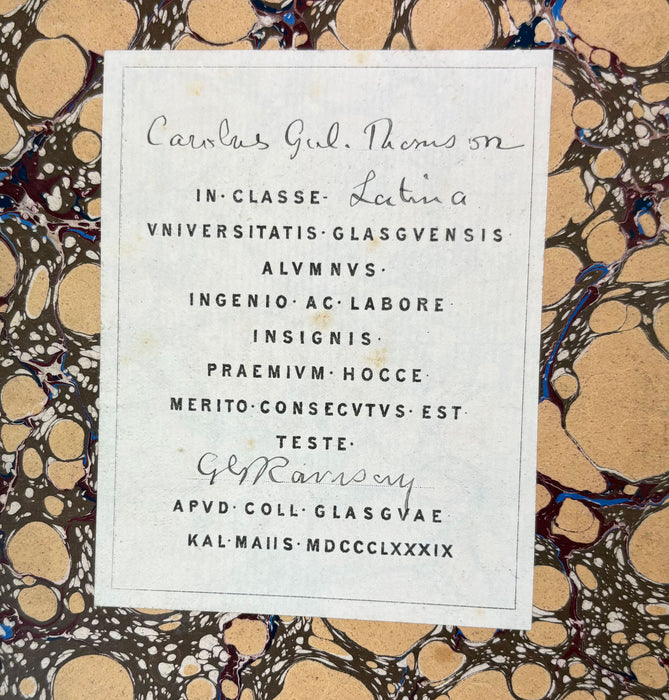 Carolus Gul. Thomson
IN · CLASSE - Latina
VNIVERSITATIS · GLASGVENSIS
ALVMNVS ·
INGENIO · AC · LABORE
INSIGNIS ·
PRAEMIVM · HOCCE
MERITO · CONSECVTVS · EST
TESTE ·
G G Ramsay
APVD · COLL · GLASGVAE
KAL · MAIIS · MDCCCLXXXIX